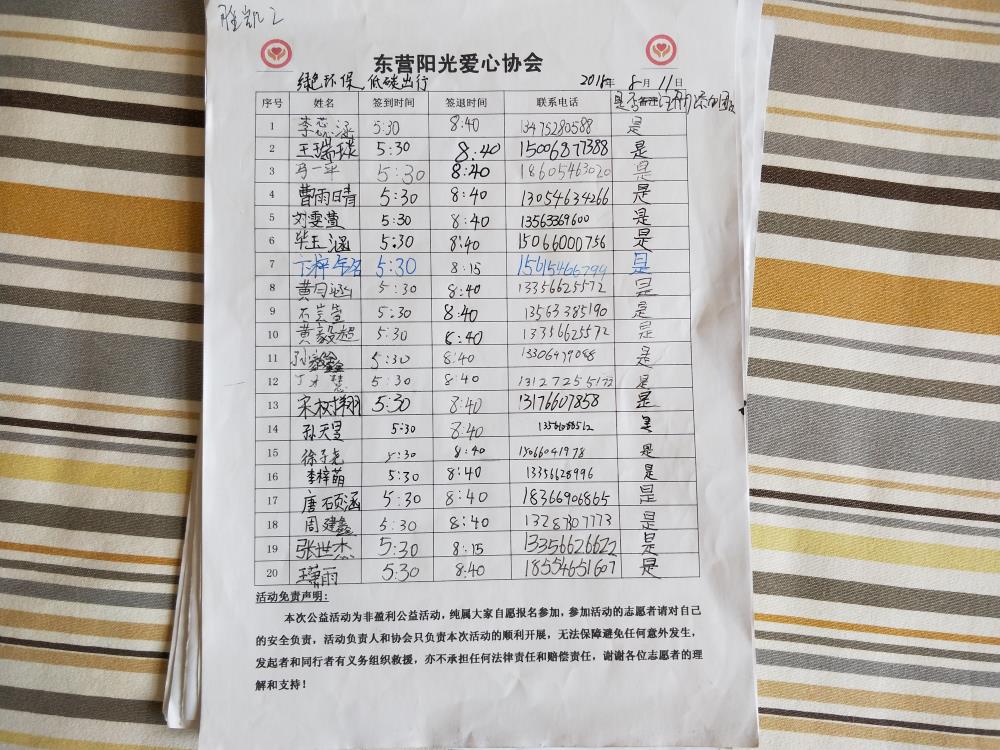 胜凯2
东营阳光爱心协会
绿色环保 低碳出行 2018年 8月 11日
序号 姓名 签到时间 签退时间 联系电话 是否
1 李蕊涵 5:30 8:40 13475280588 是
2 王瑞璟 5:30 8:40 15006877388 是
3 马一平 5:30 8:40 18605463020 是
4 曹雨晴 5:30 8:40 13054634266 是
5 刘雯萱 5:30 8:40 13563369600 是
6 毕玉涵 5:30 8:40 15066000756 是
7 5:30 8:15 15615466794 是
8 黄月涵 5:30 8:40 13356625572 是
9 石芸萱 5:30 8:40 13563385190 是
10 黄毅超 5:30 8:40 13356625572 是
11 孙家鑫 5:30 8:40 是
12 5:30 8:40 是
13 宋树翔 5:30 8:40 13176607858 是
14 孙天昱 5:30 8:40 是
15 徐子尧 5:30 8:40 是
16 李梓萌 5:30 8:40 13356628996 是
17 唐硕涵 5:30 8:40 18366906865 是
18 周建鑫 5:30 8:40 13287307773 是
19 张世杰 5:30 8:15 13356626622 是
20 王潇雨 5:30 8:40 18554651607 是
活动免责声明:
本次公益活动为非盈利公益活动，纯属大家自愿报名参加，参加活动的志愿者请对自己
的安全负责，活动负责人和协会只负责本次活动的顺利开展，无法保障避免任何意外发生，
发起者和同行者有义务组织救援，亦不承担任何法律责任和赔偿责任，谢谢各位志愿者的理
解和支持！